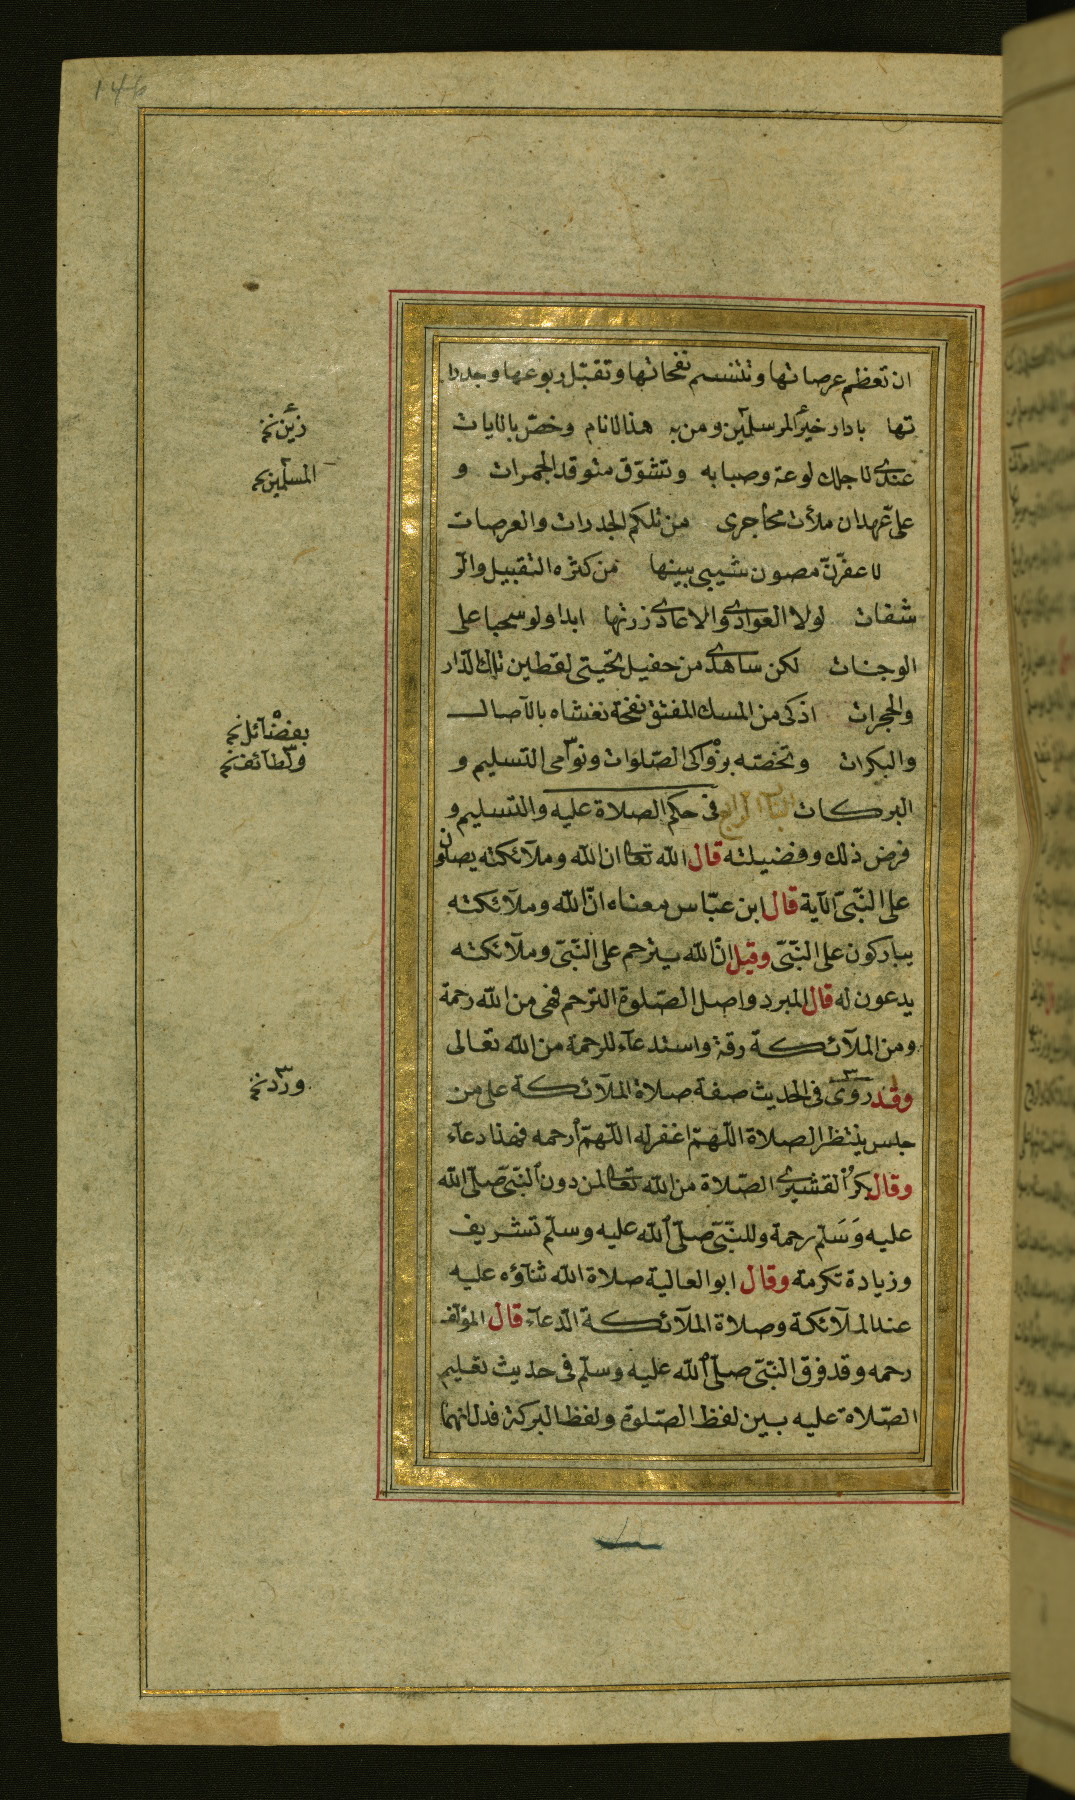 146
ان تعظم عرصاتها وتتنسم نفحاتها وتقبّل ربوعها وجدرا
تها يا دار خير المرسلين ومن به هذا لانام وخصّ بالايات
عندى لاجلك لوعة وصبابه وتشوّق متوقد الجمرات و
على عهد ان ملأت محاجرى من تلكم الجدرات والعرصات
لاعفّرنّ مصون شيبى بينها من كثره التقبيل والر
شفات لولا العوادى والاعادى زرتها ابدا ولو سحبا على
الوجنات لكن ساهدى من حفيل تحيّتى لقطين تلك الدّار
والحجرات اذكى من المسك المفتق نفحة تغشاه بالآصال
والبكرات وتخصّه بزواكى الصّلوات ونوامى التسليم و
البركات الباب الرابع فى حكم الصلاة عليه والتسليم و
فرض ذلك وفضيلته قال الله تعالى ان الله وملآئكته يصلّون
على النّبىّ الآية قال ابن عبّاس معناه انّ الله وملآئكته
يباركون على النّبىّ وقيل انّ الله يترحم على النّبىّ وملآئكته
يدعون له قال المبرد واصل الصّلوة الترحم فهى من الله رحمة
ومن الملآئكة رقة واستدعآء للرحمة من الله تعالى
وقد روى فى الحديث صفة صلاة الملآئكة على من
جلس ينتظر الصلاة اللّهمّ اغفر له اللّهمّ ارحمه فهذا دعآء
وقال بكر القشيرى الصّلاة من الله تعالى لمن دون النّبىّ صلّى الله
عليه وَسَلّم رحمة وللنّبىّ صلّى الله عليه وسلّم تشريف
وزيادة تكرمة وقال ابو العالية صلاة الله ثنآؤه عليه
عند الملآئكة وصلاة الملآئكة الدّعآء قال المؤلف
رحمه وقد فرق النّبىّ صلّى الله عليه وسلّم فى حديث تعليم
الصّلاة عليه بين لفظ الصّلوة ولفظ البركة فدل انهما
المسلمين نخ
بفضآئل نخ
ولطآئف نخ
ورد نخ